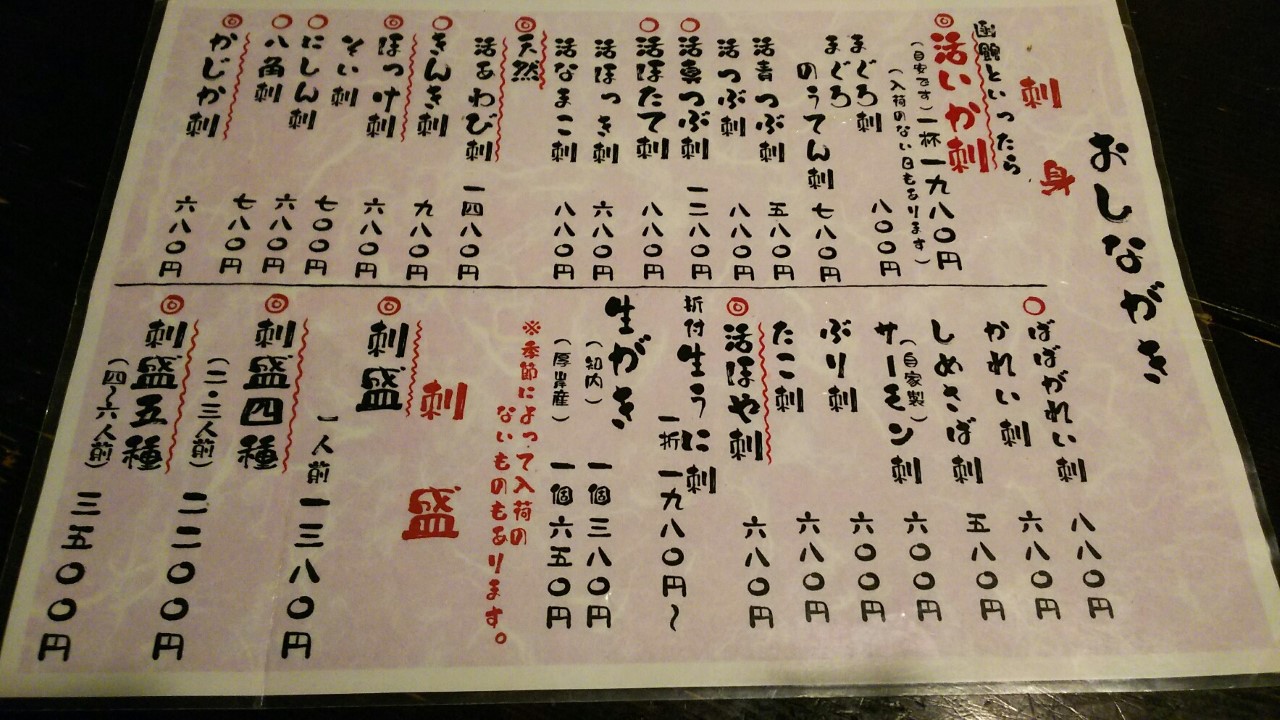 おしながき
刺身
函館といったら
◎活いか刺 一杯 一九八〇円
(目安です)
(入荷のない日もあります)
まぐろ刺 八〇〇円
まぐろのうてん刺 七八〇円
活青つぶ刺 五八〇円
活つぶ刺 八八〇円
〇活真つぶ刺 一二八〇円
〇活ほたて刺 八八〇円
活ほっき刺 六八〇円
活なまこ刺 八八〇円
◎天然
活あわび刺 一四八〇円
〇きんき刺 九八〇円
◎ほっけ刺 六八〇円
そい刺 七〇〇円
〇にしん刺 六八〇円
〇八角刺 七八〇円
◎かじか刺 六八〇円
〇ばばがれい刺 八八〇円
かれい刺 六八〇円
しめさば刺 五八〇円
(自家製)
サーモン刺 六〇〇円
ぶり刺 六〇〇円
たこ刺 六八〇円
◎活ほや刺 六八〇円
折付生うに刺
一折 一九八〇円〜
生がき
(知内) 一個 三八〇円
(厚岸産) 一個 六五〇円
※季節によって入荷の
ないものもあります。
刺盛
◎刺盛 一人前 一三八〇円
◎刺盛四種
(二・三人前) 二二〇〇円
◎刺盛五種
(四〜六人前) 三五〇〇円